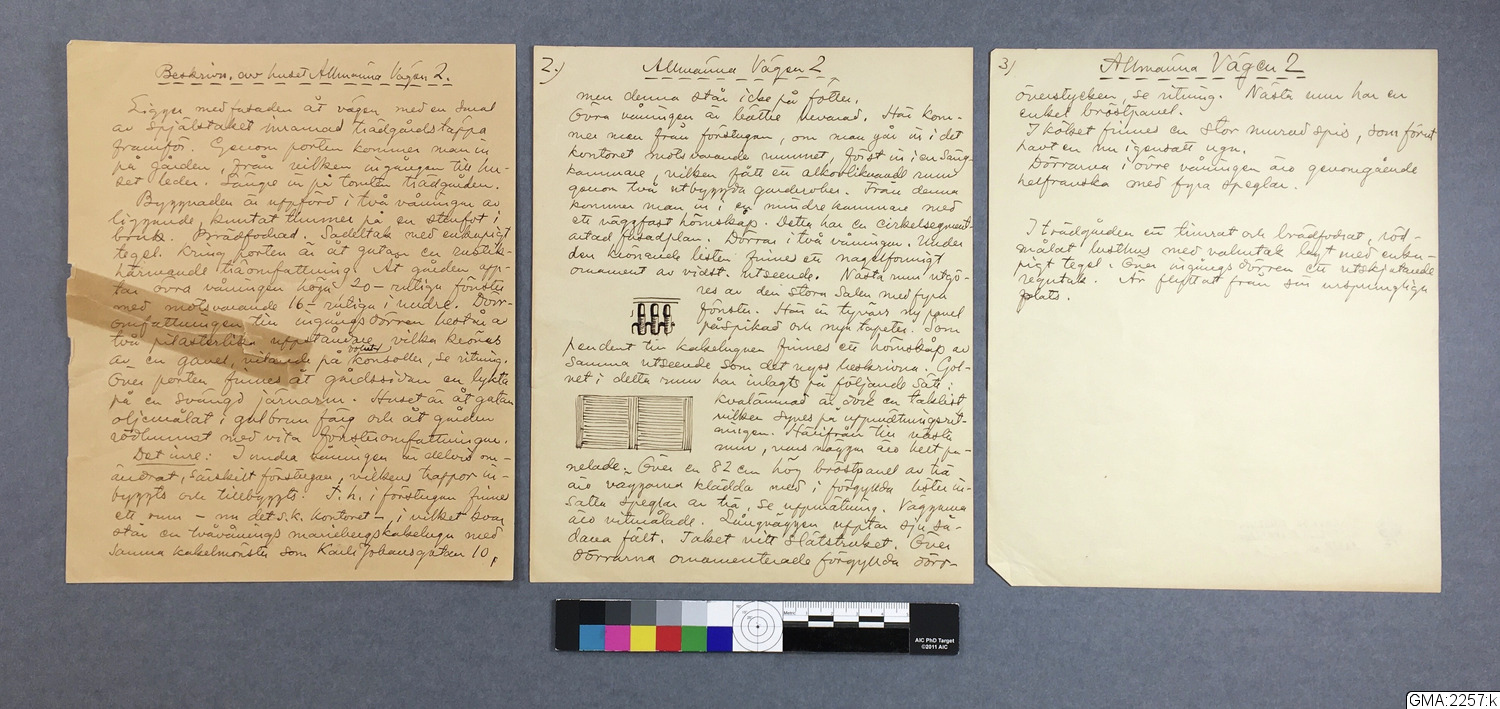 Beskrivn. av huset Allmänna Vägen 2.
Ligger med fasaden åt vägen med en smal
av spjälstaket inramad trädgårdstäppa
framför. Genom porten kommer man in
på gården, från vilken ingången till hu-
set leder. Längre in på tomten trädgården.
Byggnaden är uppförd i två våningar av
liggande, knutat timmer på en stenfot i
bruk. Brädfodrad. Sadeltak med enkupigt
tegel. Kring porten är åt gatan en rustik-
härmande träomfattning. Åt gården upp-
tar övre våningen höga 20-rutiga fönster
med motsvarande 16-rutiga i nedre. Dörr-
omfattningen till ingångsdörren består av
två pilasterlika uppståndare, vilka krönas
av en gavel, vilande på konsoller, se ritning.
Över porten finnes åt gårdssidan en lykta
på en svängd järnarm. Huset är åt gatan
oljemålat i gulbrun färg och åt gården
rödbrunst med vita fönsteromfattningar.
Det inre: I nedra våningen är delvis om-
ändrat, särskilt förstugan, vilkens trappor in-
byggts och tillbyggts. T.h. i förstugan finnes
ett rum – nu det s.k. kontoret – i vilket kvar
står en tvåvånings mariebergskakelugn med
samma kakelmönster som Karl Johansgatan 10,
2.) Allmänna Vägen 2
men denna står icke på fötter.
Övra våningen är bättre bevarad. Här kom-
mer man från förstugan, om man går in i det
kontoret motsvarande rummet, först in i en säng-
kammare, vilken fått en alkovliknande rum
genom två utbyggda garderober. Från denna
kommer man in i en mindre kammare med
ett väggfast hörnskåp. Detta har en cirkelsegment-
artad fasadplan. Dörrar i två våningar. Under
den krönande listen finnes ett nagelformigt
ornament av vidst. utseende. Nästa rum utgö-
res av den stora salen med fyra
fönster. Här är tyvärr ny panel
påspikad och nya tapeter. Som
pendent till kakelugnen finnes ett hörnskåp av
samma utseende som det nyss beskrivna. Gol-
vet i detta rum har inlagts på följande sätt:
Kvalämnad är dock en taklist
vilken synes på uppmätningsrit-
ningen. Härifrån till nästa
rum, vars väggar äro helt pa-
nelade. Över en 82 cm hög bröstpanel av trä
äro väggarna klädda med i förgyllda lister in-
satta speglar av trä, se uppmätning. Väggarna
äro vitmålade. Långväggen upptar sju så-
dana fält. Taket vitt slätstruket. Över
dörrarna ornamenterade förgyllda dörr-
3) Allmänna Vägen 2
överstycken se ritning. Nästa rum har en
enkel bröstpanel.
I köket finnes en stor murad spis, som förut
haft en nu igensatt ugn.
Dörrarna i övre våningen äro genomgående
helfranska med fyra speglar.
I trädgården ett timrat och brädfodrat, röd-
målat lusthus med valmtak lagt med enku-
pigt tegel. Över ingångsdörren ett utskjutande
regntak. Är flyttat från sin ursprungliga
plats.
AIC PhD Target
©2011 AIC
GMA:2257:k